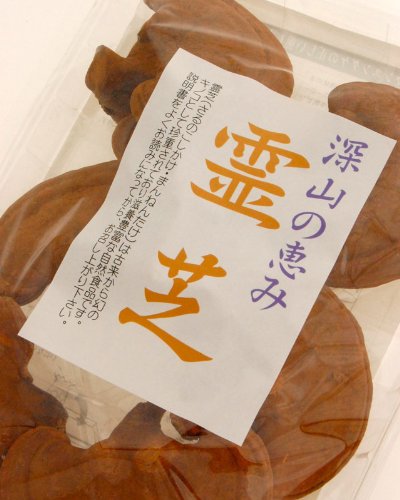 深山の恵み
霊芝
霊芝(さるのこしかけ・まんねんたけ)は古来から幻の
キノコとして珍重されており滋養豊富な自然食品です。
説明書をよくお読みになってから、お召し上がり下さい。